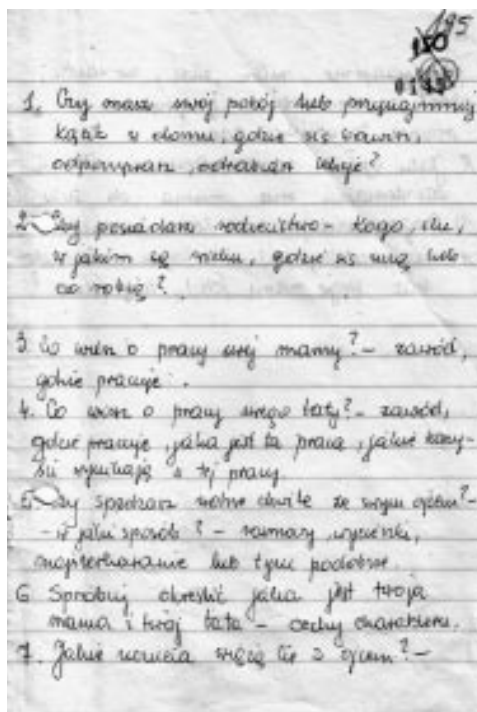 195
150
0143
1. Czy masz swój pokój lub przynajmniej
kącik w domu, gdzie się bawisz,
odpoczywasz, odrabiasz lekcje?
2. Czy posiadasz rodzeństwo - kogo, ile,
w jakim są wieku, gdzie się uczą lub
co robią?
3. Co wiesz o pracy swej mamy? - zawód,
gdzie pracuje.
4. Co wiesz o pracy swego taty? - zawód,
gdzie pracuje, jaka jest ta praca, jakie korzy-
ści wynikają z tej pracy.
5. Czy spędzasz wolne chwile ze swym ojcem? -
- w jaki sposób? - rozmowy, wycieczki,
majsterkowanie lub tym podobne.
6 Spróbuj określić jaka jest twoja
mama i twój tata - cechy charakteru.
7. Jakie uczucia wiążą Cię z ojcem? -